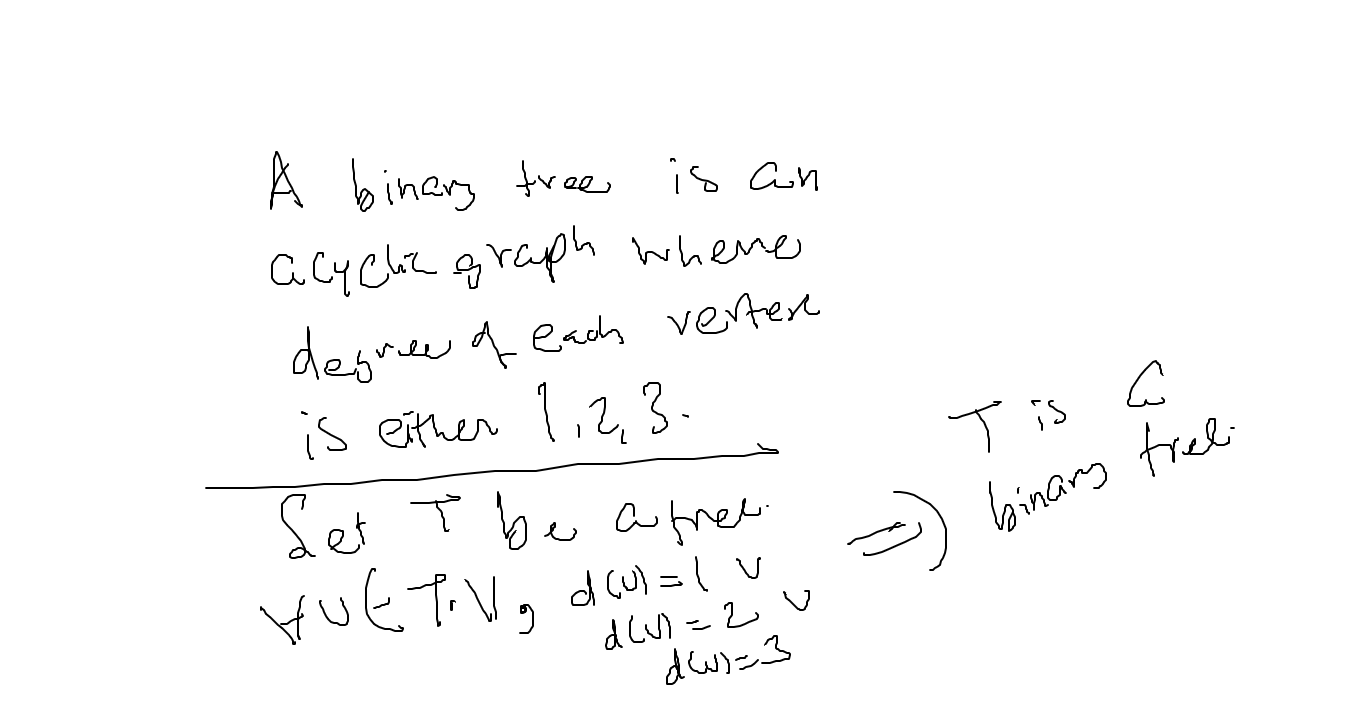 A binary tree is an
acyclic graph where
degree of each vertex
is either 1, 2, 3.
Let T be a tree.
∀v ∈ T.V, d(v)=1 ∨
d(v)=2 ∨
d(v)=3
⇒) T is a
binary tree.